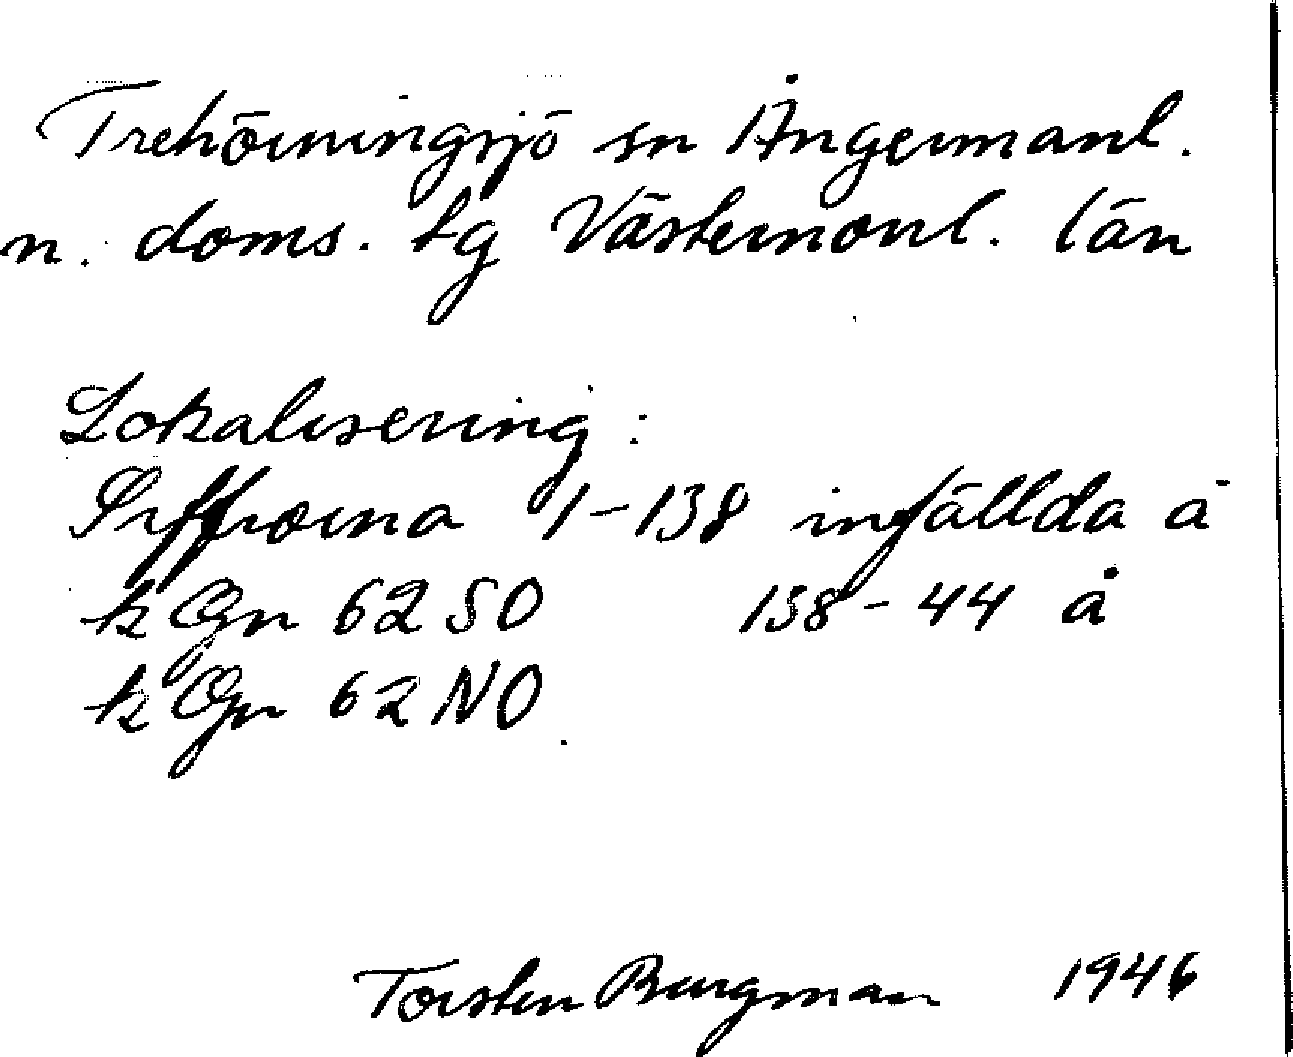 Trehörningsjö sn Ångermanl.
n. doms. tg Västernorrl. län
Lokalisering:
Siffrorna 1-138 infällda å
k Ögn 62 SO 138-44 å
k Ögn 62 NO
Torsten Burgman 1946